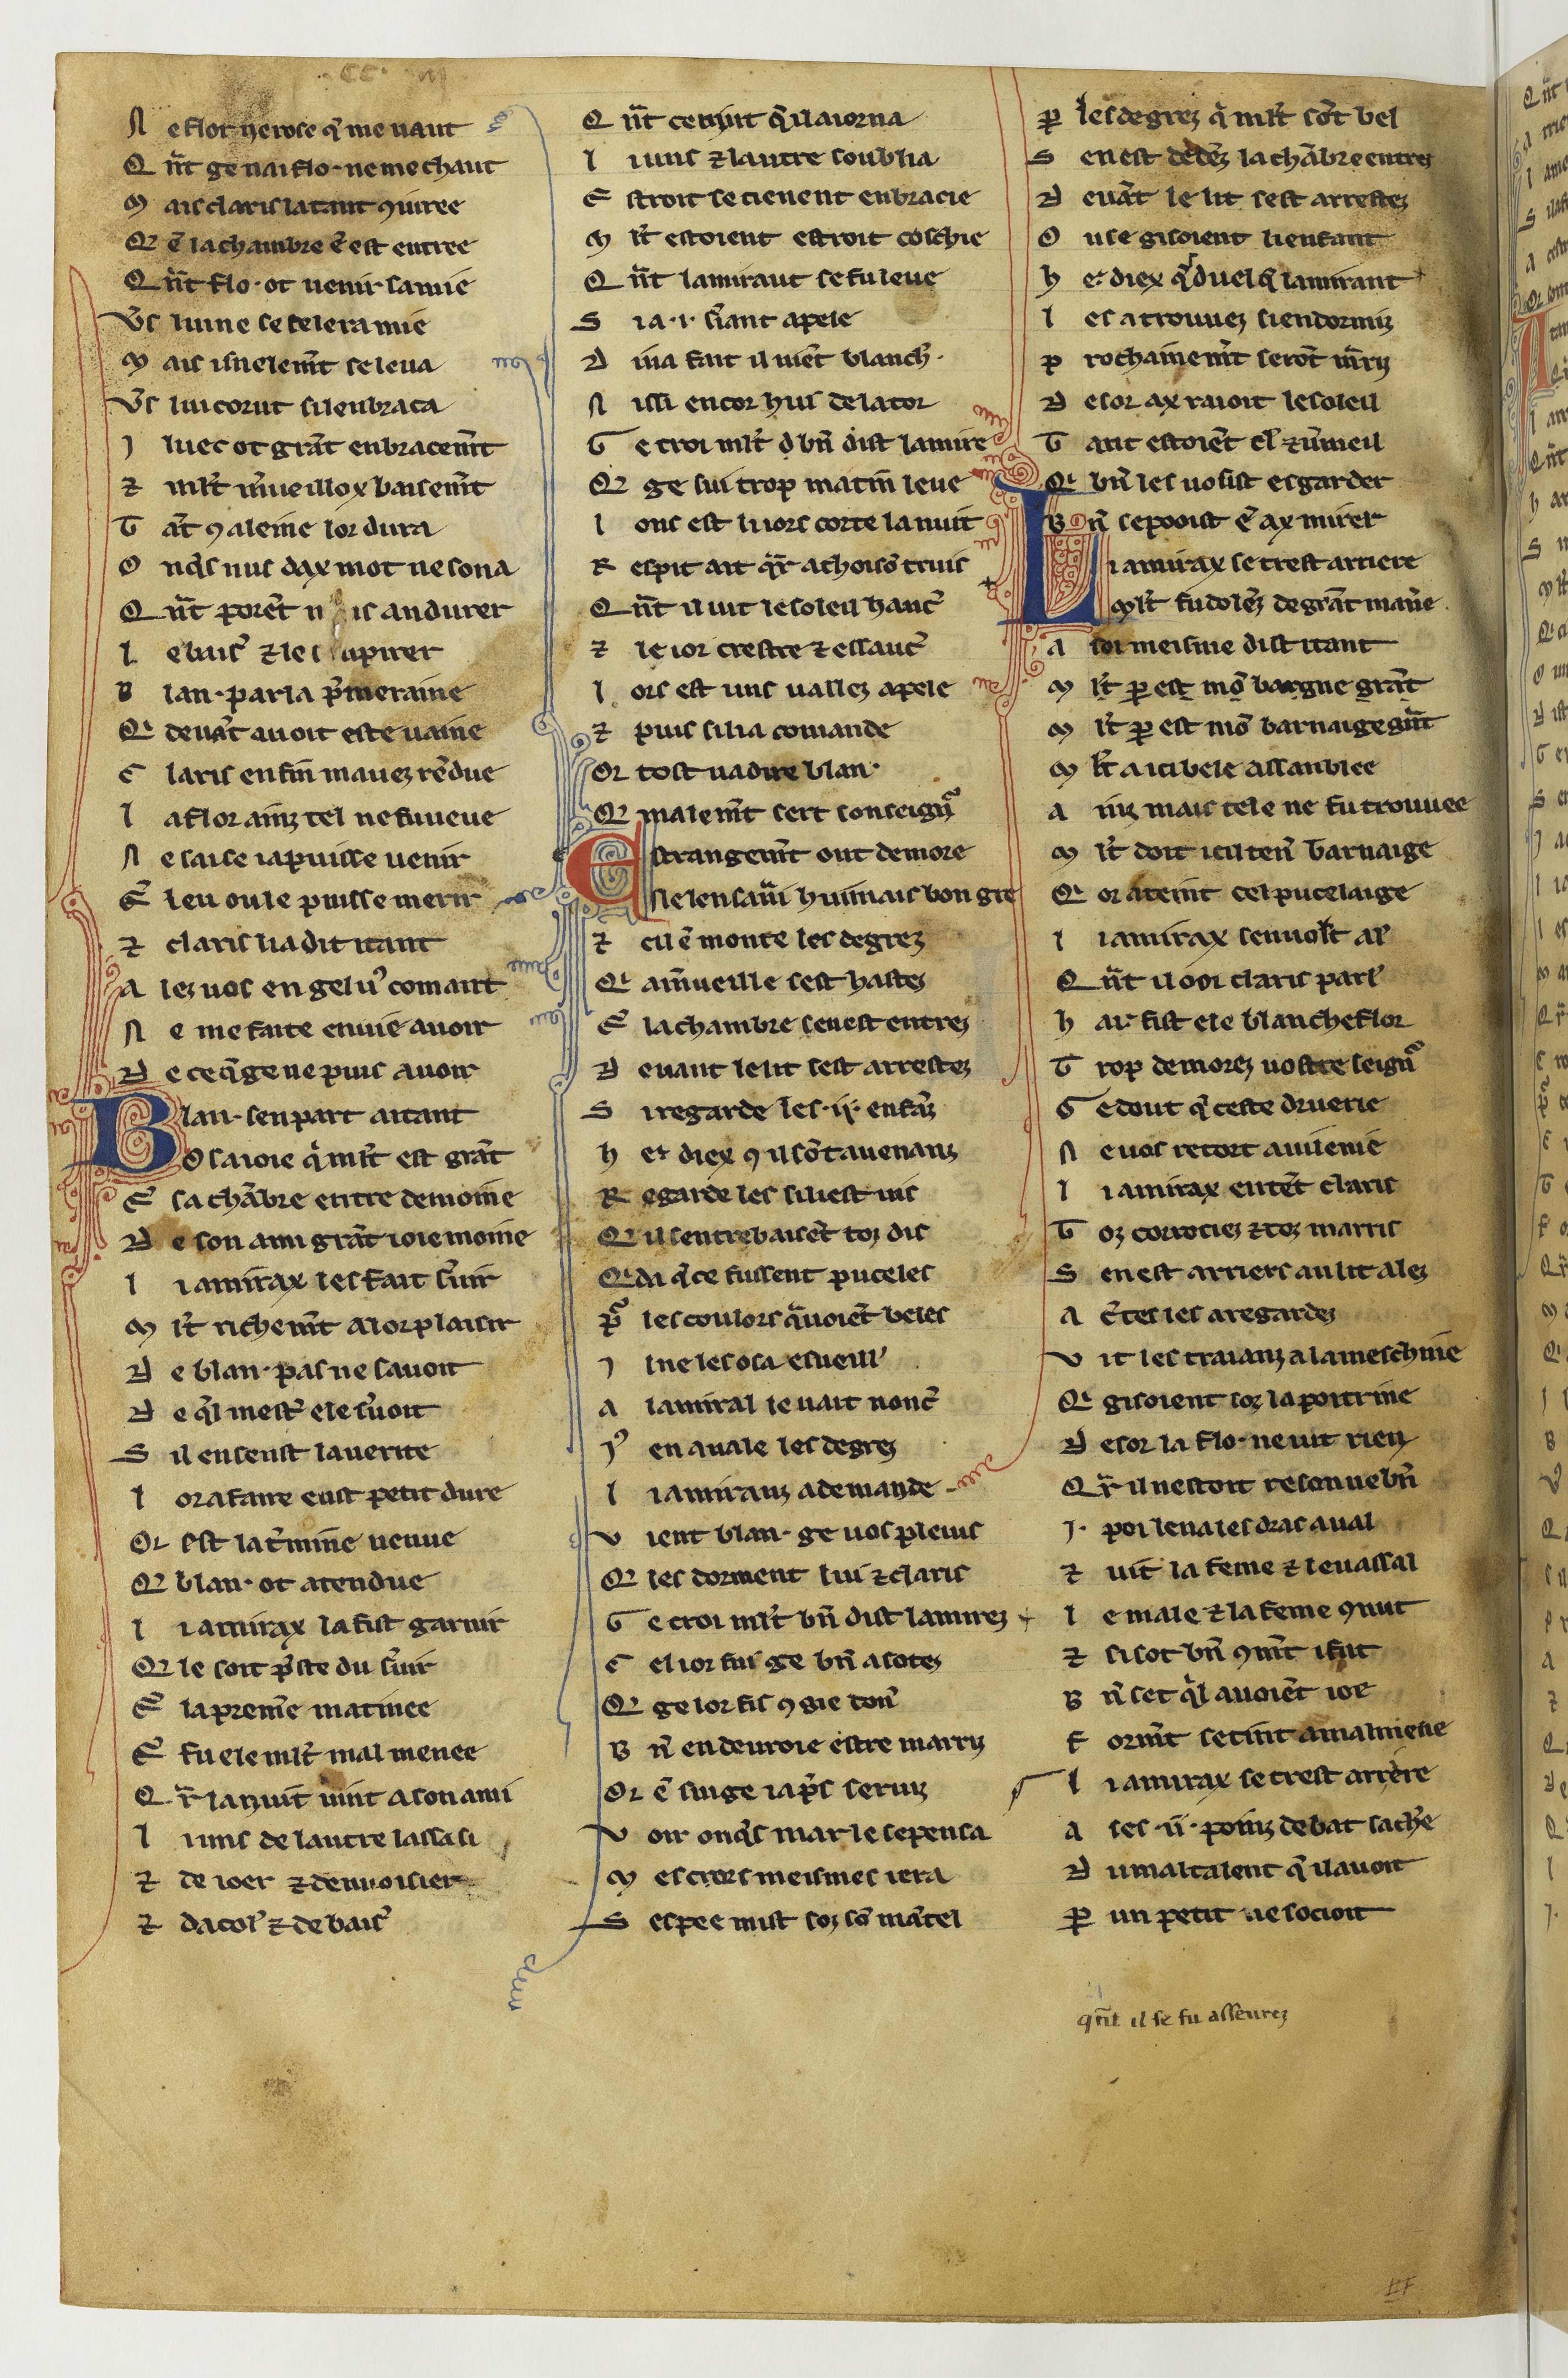 N e flor ne rose q̃ me vaut
Q ñt ge n ai flo · ne me chaut
M ais claris la tant ꝯ uiree
Q̃ ẽ la chambre ẽ est entree
Q ñt flo · ot uenir s amie
V̾s lui ne se celera mie
M ais isnelem̃t se leva
V̾s lui corut si l enbraca
I luec ot grãt enbracem̃t
⁊ ml̃t m̾ueillox baisem̃t
T ãt ꝯ aleine lor dura
O nq̃s nus d ax mot ne sona
Q ñt porẽt andurer
L e bais̾ ⁊ le
B lan · parla p̾meraine
Q̃ devãt avoit este vaine
C laris en fin m avez rẽdue
L a flor ainz tel ne fu veue
N e sai se ia puisse venir
Ẽ leu ou le puisse merir
⁊ claris li a dit itant
A lez vos en ge l u̾ comant
N e me faite envie avoir
D e ce q̃ ge ne puis avoir
B lan · s en part aitant
O sa ioie q̃ ml̃t est grãt
Ẽ sa chãbre entre demoine
D e son ami grãt ioie moine
L i amirax les fait s̾uir
M l̃t richem̃t a lor plaisir
D e blan · pas ne savoit
D e q̃l mest̾ ele s̾uoit
S il en seust la verite
L or afaire eust petit dure
Or est la t̾mine venue
Q̃ blan · ot atendue
L i amirax la fist garnir
Q̃ le soit p̾ste du s̾uir
Ẽ la prem̾e matinee
Ẽ fu ele ml̃t mal menee
Q r̃ la nuit vint a son ami
L i uns de l autre lassa si
⁊ de ioer ⁊ d envoisier
⁊ d acol̾ ⁊ de bais̾
Q ñt ce vint q̃ il aiorna
L i uns ⁊ l autre s oublia
E stroit se tienent enbracie
M l̃t estoient estroit coschie
Q ñt l amiraut se fu leve
S i a · i · s̾iant apele
D iva fait il viẽt blanch̾ ·
N issi encor hui de la tor
G e croi ml̃t d bñ dist l amire
Q̃ ge sui trop matin leve
L ons est li iors corte la nuit
R espit ait qr̃ achoisõ truis
Q ñt il vit le soleil hauc̾
⁊ le ior crestre ⁊ essauc̾
L ors est uns vallez apele
⁊ puis si li a comande
Or tost va dire blan ·
Q̃ malem̃t sert son seign̾
E strangem̃t ont demore
N e l en savi hui mais bon gre
⁊ cil ẽ monte les degrez
Q̃ a m̾ueille s est hastez
Ẽ la chambre s en est entrez
D evant le lit s est arrestez
S i regarde les · ii · enfãz
H e diex ꝯ il sõt avenanz
R egarde les si li est vis
Q̃ il s entrebaisẽt toz dis
Q̃da q̃ ce fussent puceles
P̾ les coulors q̃ avoiẽt beles
I l ne les osa esveill̾
A l amiral le vait nonc̾
I̾ en avale les degrez
L i amiranz a demande
V ient blan · ge vos plevis
Q̃ les dorment lui ⁊ claris
G e croi ml̃t bñ dist l amirez
C el ior fui ge bñ asotez
Q̃ ge lor fis ꝯ gie don̾
B ñ en devroie estre marriz
Or ẽ sui ge ia p̾s serviz
V oir onq̃s mar le se pensa
M es cors meismes i era
S espee mist soz sõ mãtel
P̱ les degrez q̃ ml̃t sõt bel
S en est dedẽz la chãbre entrez
D evãt le lit s est arrestez
O u se gisoient li enfant
H e diex q̃ duel q̃ l amirant
L es a trouvez si endormiz
P rochainem̃t serõt m̃riz
D e sor ax raioit le soleil
T ant estoiẽt cl̾ ⁊ u̾meil
Q̃ bñ les vosist esgarder
B ñ se pooist ẽ ax mirer
L i amirax se trest arriere
M l̃t fu dolẽz de grãt man̾e
A soi meisme dist itant
M l̃t ꝑ est mõ bargne grãt
M l̃t ꝑ est mõ barnaige gñt
M l̃t a ici bele assanblee
A inz mais tele ne fu trovuee
M l̃t doit ici ten̾ barnaige
Q̃ or ateint cel pucelaige
L i amirax s en volt al̾
Q ñt il ooi claris parl̾
H ai fist ele blancheflor
T rop demorez vostre seign̾
G e dout q̃ ceste druerie
N e vos retort a vilenie
L i amirax entẽt claris
T oz corrociez ⁊ toz marris
S en est arriers au lit alez
A c̾tes les a regardez
V it les traianz a la meschine
Q̃ gisoient sor la poitrine
D e sor la flo · ne vit rien
Q r̃ il n estoit resonue bñ
I · poi leva les dras aval
⁊ vit la feme ⁊ le vassal
L e male ⁊ la feme ꝯnut
⁊ si sot bñ ꝯm̃t i fut
B ñ set q̃l avoiẽt ioe
F orm̃t se tint a mal mene
L i amirax se trest arrere
A ses · ii · poinz debat sa ch̾e
D u maltalent q̃ il avoit
P̱ un petit ne s ocioit
qñt il se fu asseurez